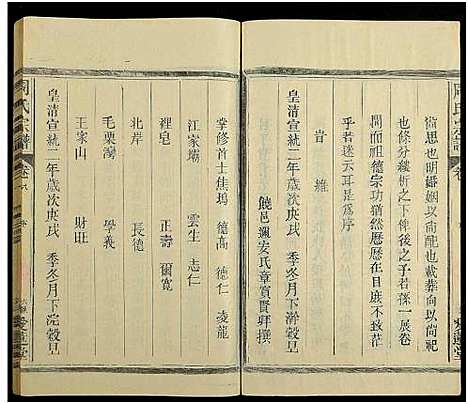 周氏宗譜
尚思也明婚姻以尚配也載葬向以尚祀也
條分縷析之下俾後之子若孫一展卷
間而祖德宗功猶然歷歷在目庶不致茫
乎者述云耳是為序
旹 維
皇清宣統二年歲次庚戌 季冬月下浣穀旦
饒邑 安氏章賓賢 撰
掌修首士焦塢 德高 德仁 凌龍
江家壩 雲生 志仁
裡皂 正壽 爾寬
北岸 長德
毛栗灣 學義
王家山 財旺
皇清宣統二年歲次庚戌 季冬月下浣穀旦
周氏宗譜
卷
愛蓮堂